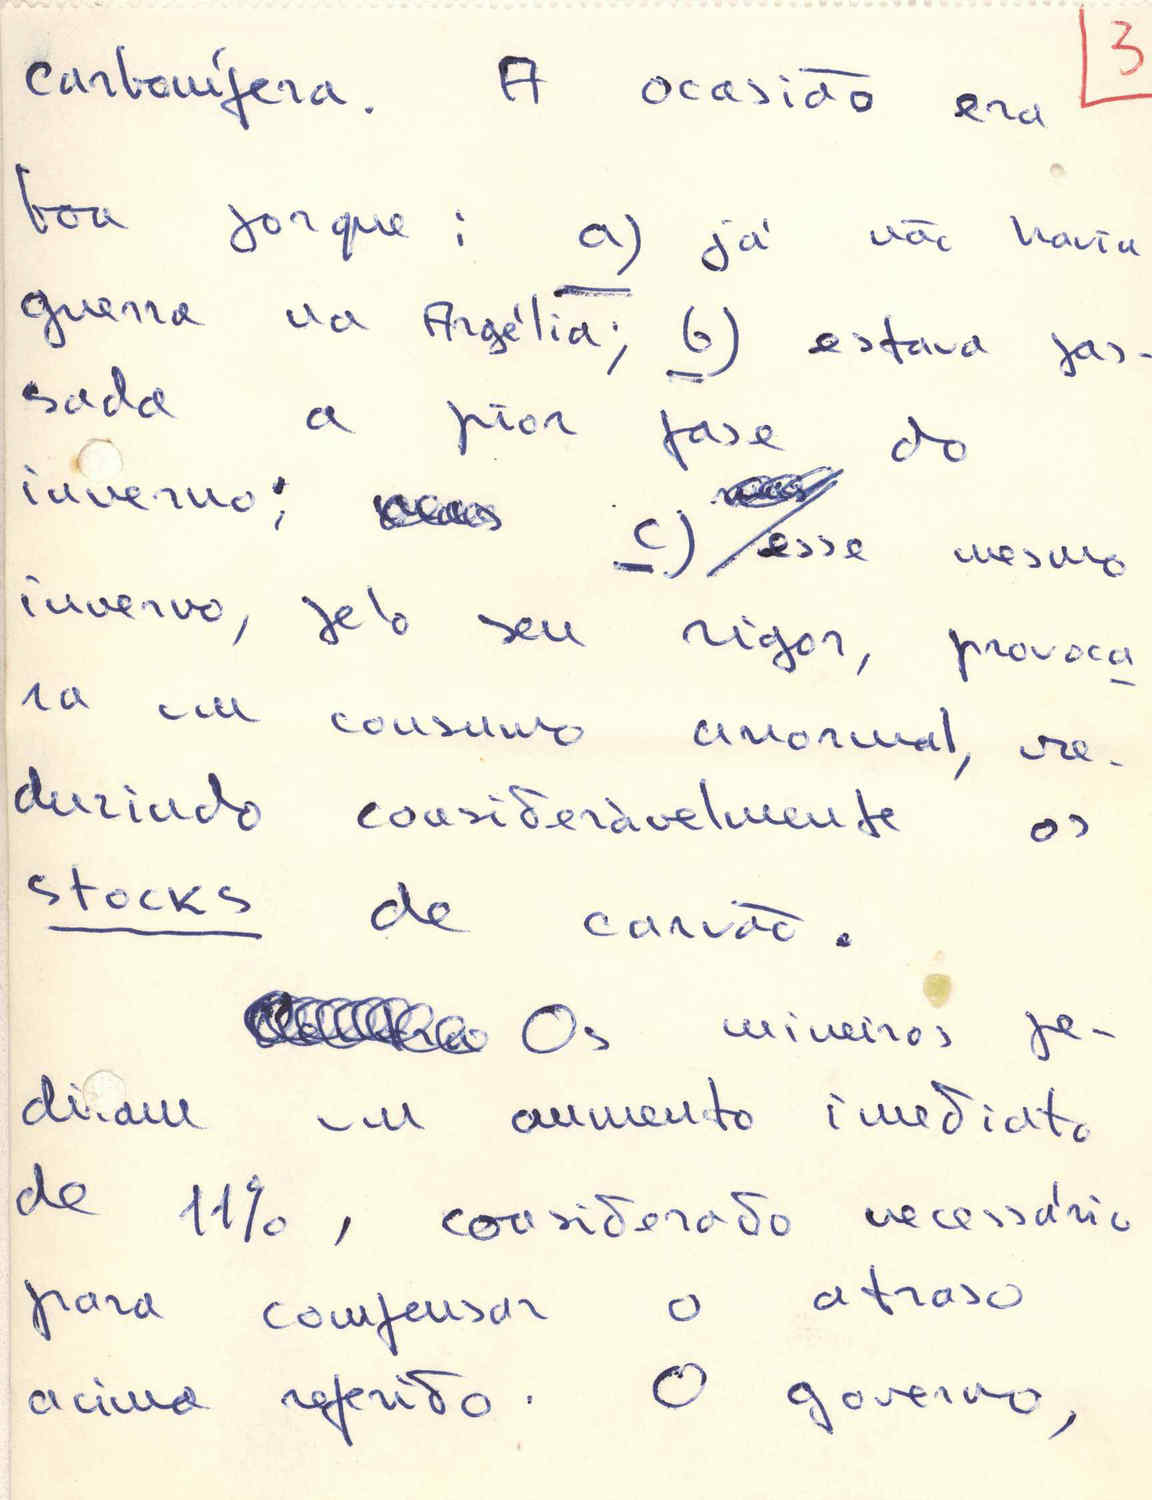 3
carbonífera. A ocasião era
boa porque: a) já não havia
guerra na Argélia; b) estava pas-
sada a pior fase do
inverno; c) esse mesmo
inverno, pelo seu rigor, provoca
ra um consumo anormal, re-
duzindo consideràvelmente os
stocks de carvão.
Os mineiros pe-
diam um aumento imediato
de 11%, considerado necessário
para compensar o atraso
acima referido. O governo,